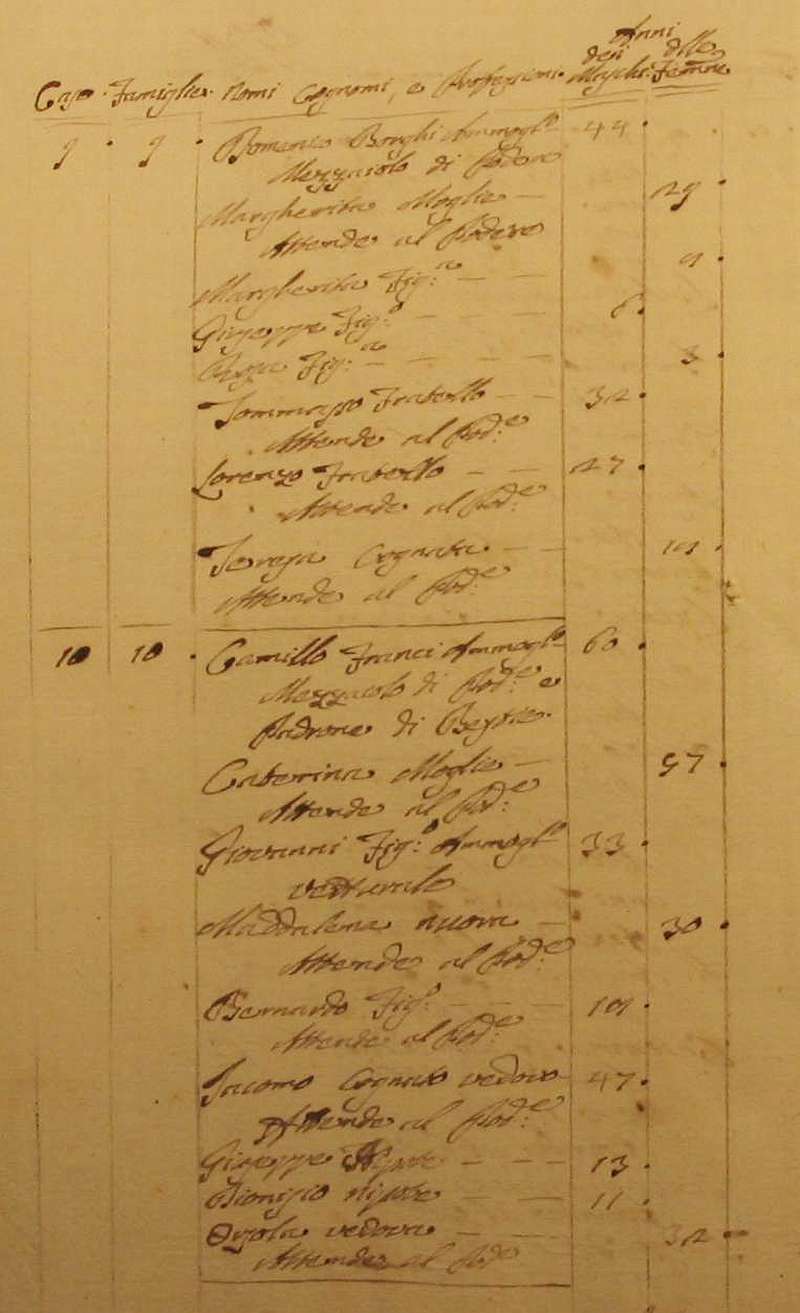 Anni
dei delle
Case Famiglie Nomi Cognomi, e Professioni Maschi Femine
9 9 Domenico Borghi Ammogl.o 44
Mezzaiolo di Podere
Margherita Moglie 29
Attende al Podere
Margherita Fig.a
Giuseppe Fig.o 6
Fig.a 3
Tommaso Fratello 32
Attende al Pod.e
Lorenzo Fratello 27
Attende al Pod.e
Teresa Cognata
Attende al Pod.e
10 10 Camillo Franci Ammogl.o 60
Mezzaiolo di Pod.e e
Padrone di Bestie
Caterina Moglie 57
Attende al Pod.e
Giovanni Fig.o Ammogl.o 33
vetturale
Maddalena nuora 30
Attende al Pod.e
Bernardo Fig.o
Attende al Pod.e
Jacomo Cognato vedovo 47
Attende al Pod.e
Giuseppe Nipote 13
Dionisio nipote 11
Orsola vedova 32
Attende al Pod.e